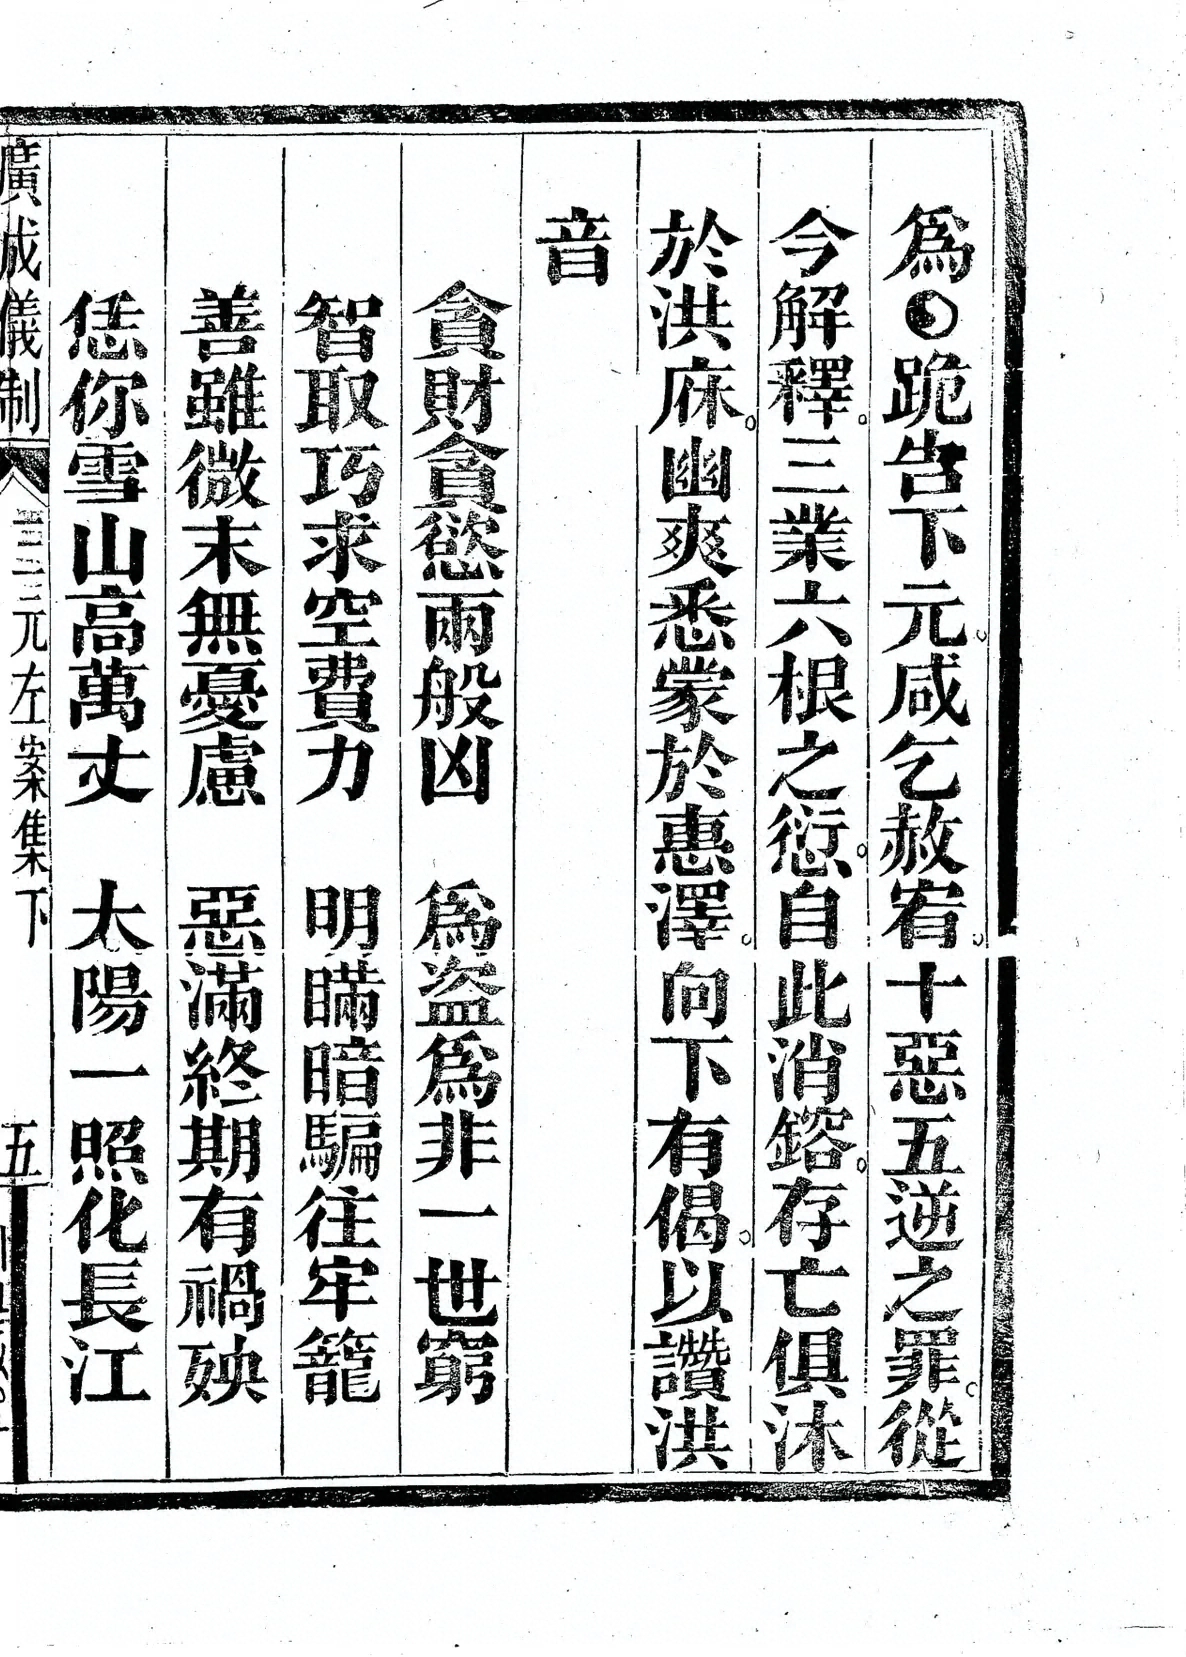 爲☯跪告下元。咸乞赦宥。十惡五逆之罪。從
今解釋。三業六根之愆。自此消鎔。存亡俱沐
於洪庥。幽爽悉蒙於惠澤。向下有偈。以讚洪
音
貪財貪慾兩般凶　爲盜爲非一世窮
智取巧求空費力　明瞞暗騙往牢籠
善雖微末無憂慮　惡滿終期有禍殃
恁你雪山高萬丈　太陽一照化長江
廣成儀制　三元左案集下　五